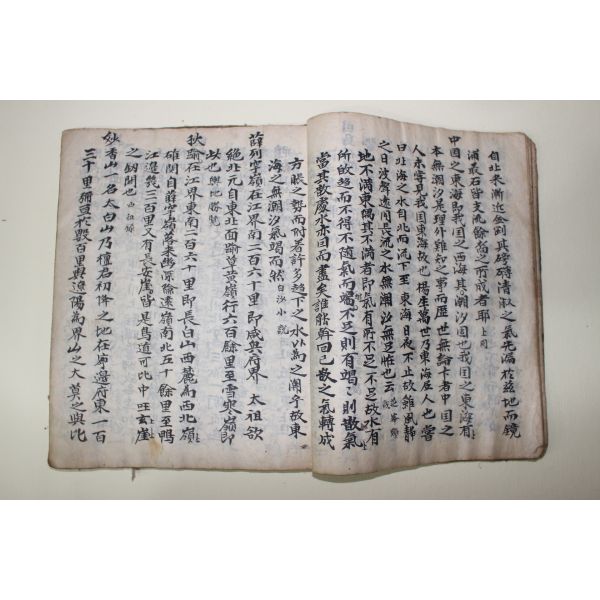 自北來漸近金剛其磅礴清淑之氣先漏於玆地而鏡
浦最石皆支流餘裔之所成者耶 上同
中國之東海即我國之西海其潮汐固也我國之東海有
本無潮汐是理外難知之事而歷世無論卞者中國之
人未嘗見我國東海故也楊生萬世乃東海居人也嘗
曰北海之水自北而流下至東海日夜不止故雖風靜
之日波聲透同長流之水無潮汐無足恠也云
地不滿東隅其不滿者即氣有所不足不足故水有
所故超而不得不隨氣而竭不足則有竭竭則散氣
當其散處水亦因而盡矣誰能斡回已散之氣轉成
方脹之勢而附着許多超下之水以爲之闔乎故東
海之無潮汐氣竭而然 白沙小說
薛列罕嶺在江界南二百六十里即咸興府界 太祖欲
絶北元自東北面踰草黃嶺行六百餘里至雪寒嶺即
此也 輿地勝覽
狄踰在江界東南二百六十里即長白山西麓爲西北嶺
確関自薛罕嶺落來幽深險遠嶺南北五十餘里至鴨
江邊幾三百里又有長安 皆是鳥道可比中 玄崖
之劒関也
妙香山一名太白山乃檀君初降之地在寧邊府東一百
三十里彌亘於數百里與 陽爲界山之大莫之與比